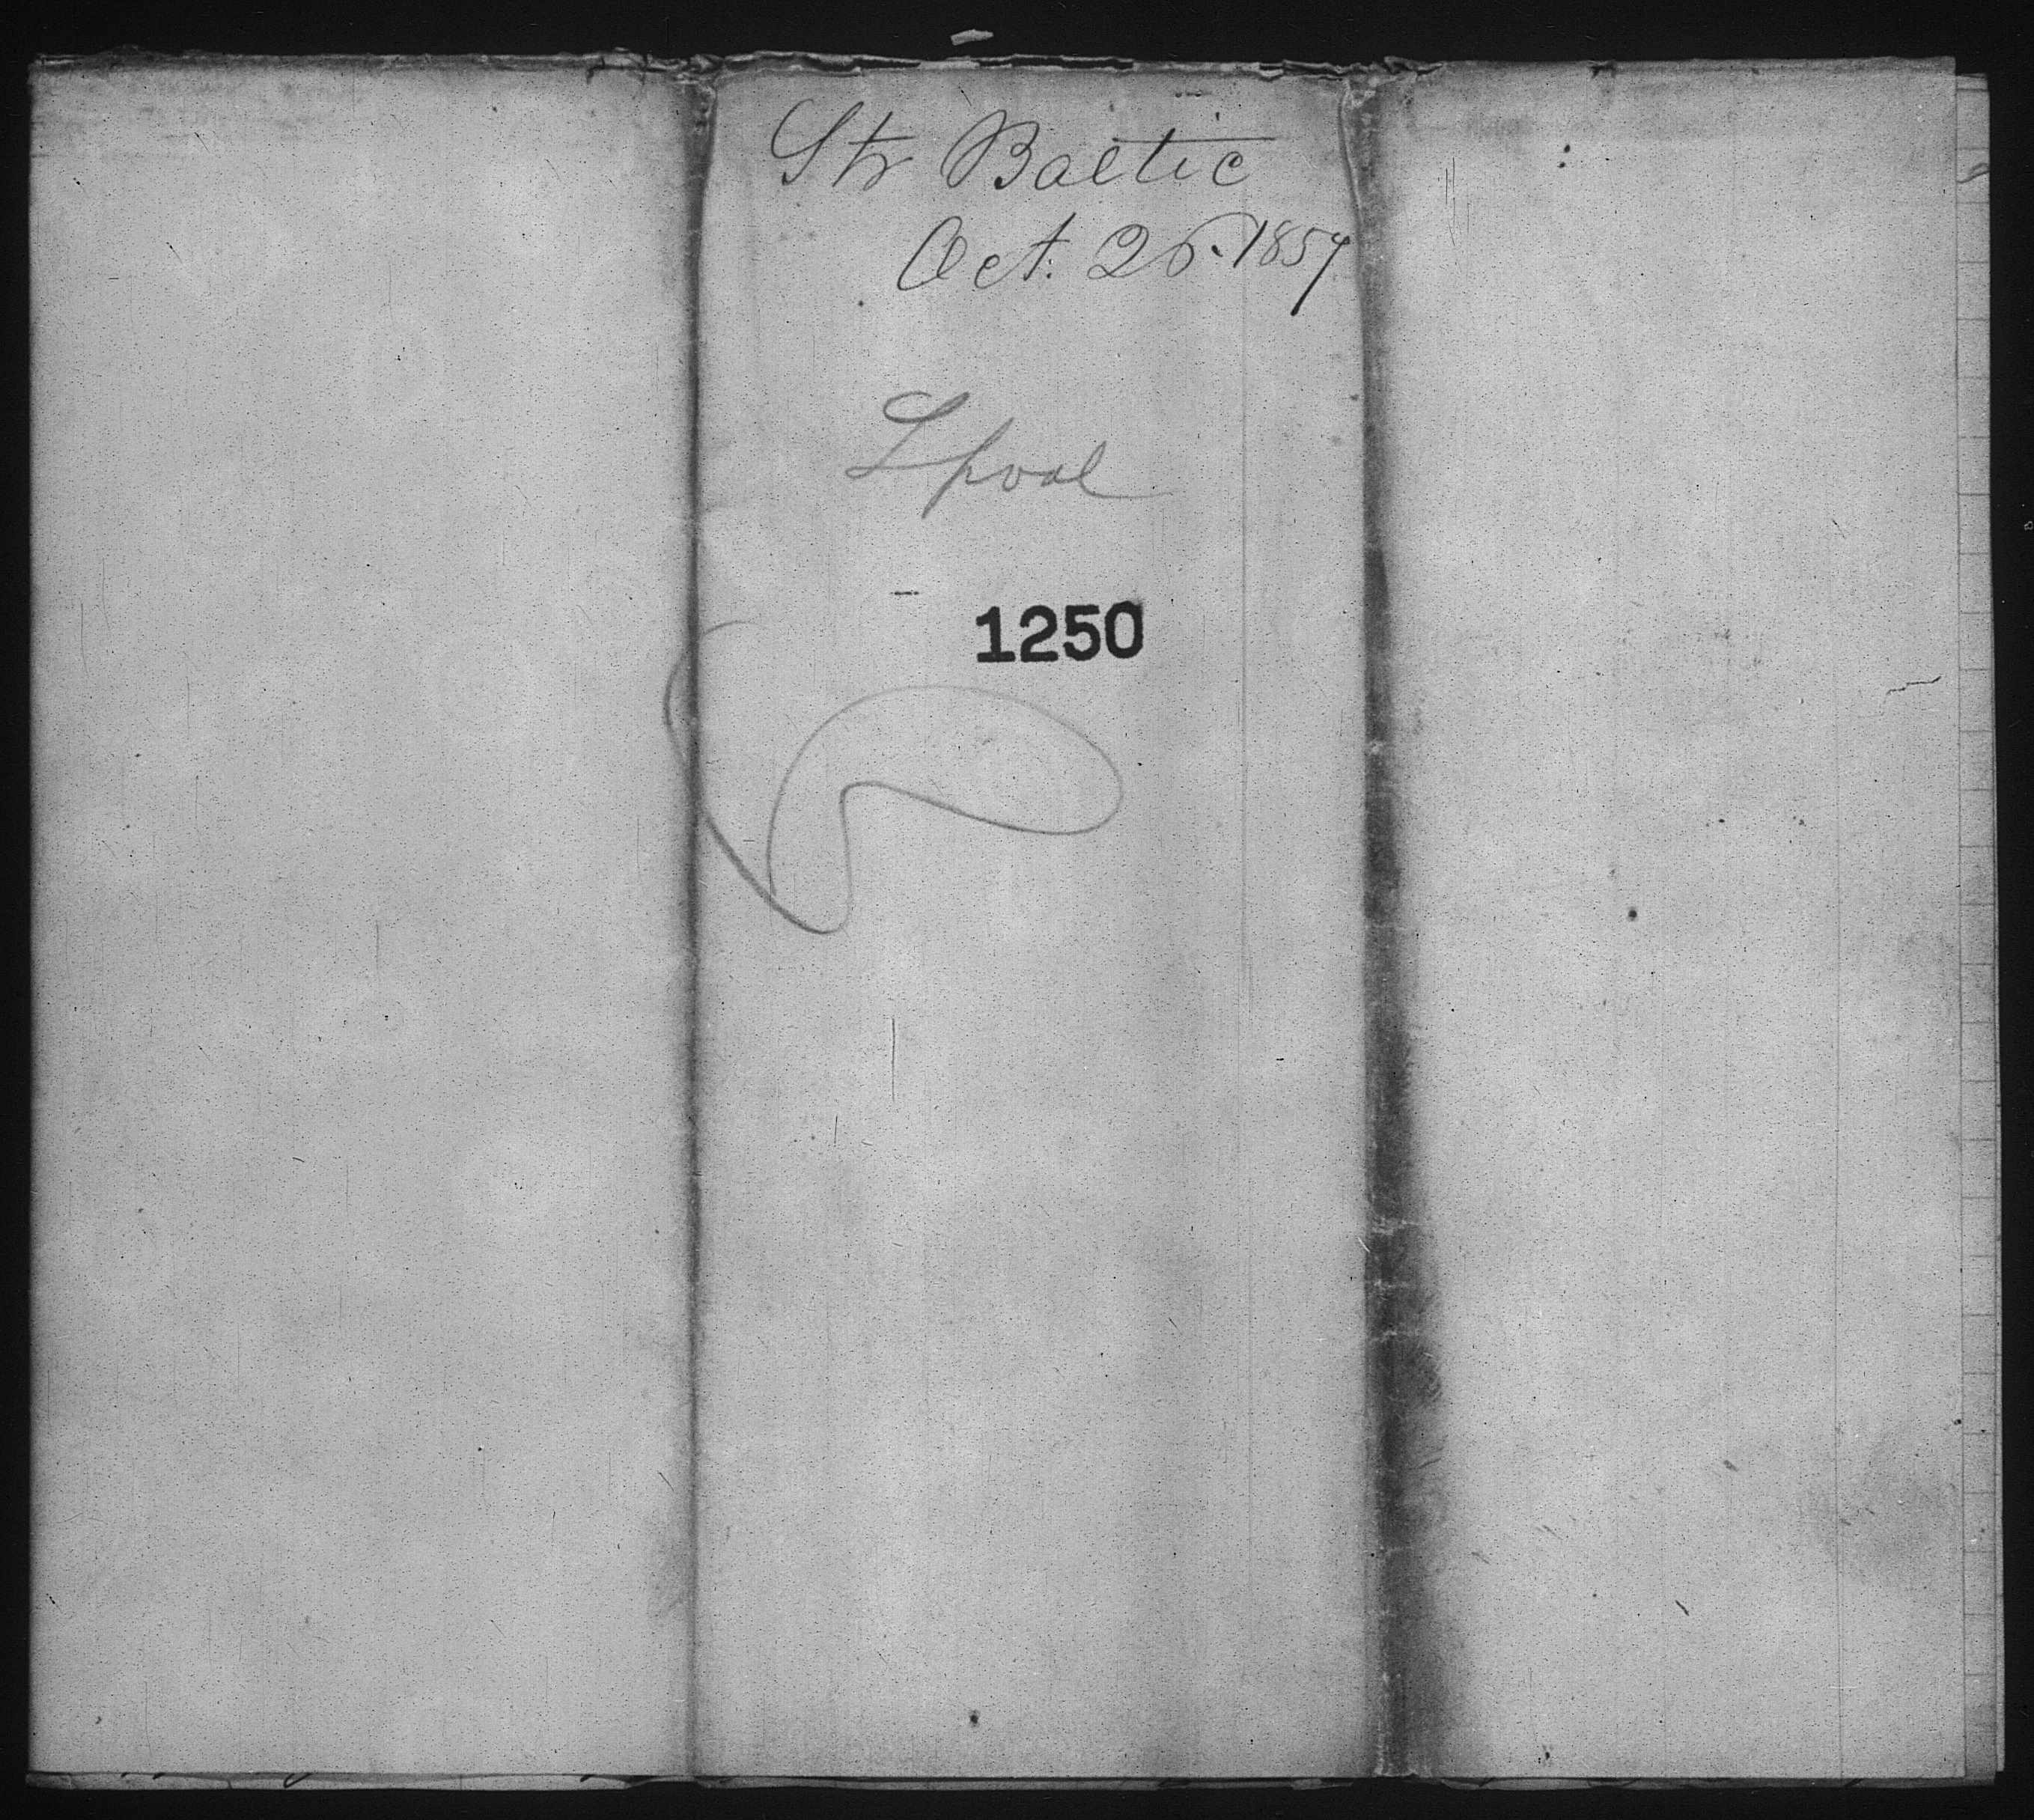 Str Baltic
Oct. 26. 1857
Lpool
1250